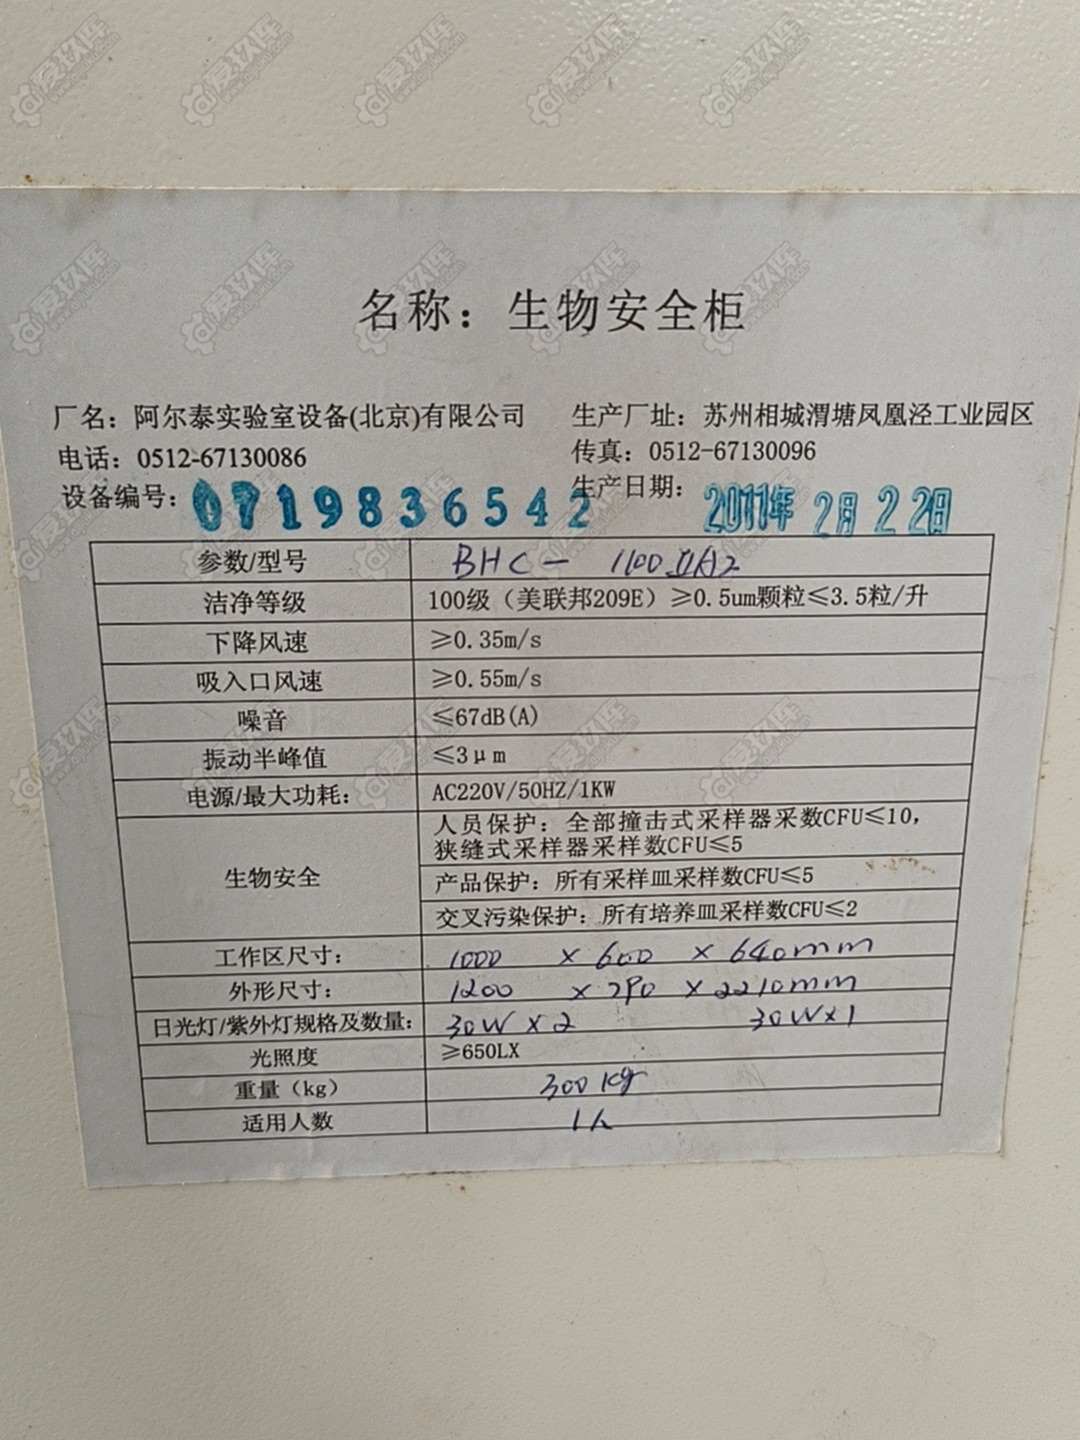 名称：生物安全柜
厂名：阿尔泰实验室设备(北京)有限公司 生产厂址：苏州相城渭塘凤凰泾工业园区
电话：0512-67130086 传真：0512-67130096
设备编号：0719836542 生产日期：2011年2月22日
参数/型号 BHC-1100ⅡA2
洁净等级 100级（美联邦209E）≥0.5um颗粒≤3.5粒/升
下降风速 ≥0.35m/s
吸入口风速 ≥0.55m/s
噪音 ≤67dB(A)
振动半峰值 ≤3μm
电源/最大功耗： AC220V/50HZ/1KW
生物安全 人员保护：全部撞击式采样器采数CFU≤10，
狭缝式采样器采样数CFU≤5
产品保护：所有采样皿采样数CFU≤5
交叉污染保护：所有培养皿采样数CFU≤2
工作区尺寸： 1000 × 600 × 640mm
外形尺寸： 1200 × 790 × 2210mm
日光灯/紫外灯规格及数量： 30W×2 30W×1
光照度 ≥650LX
重量（kg） 300kg
适用人数 1人